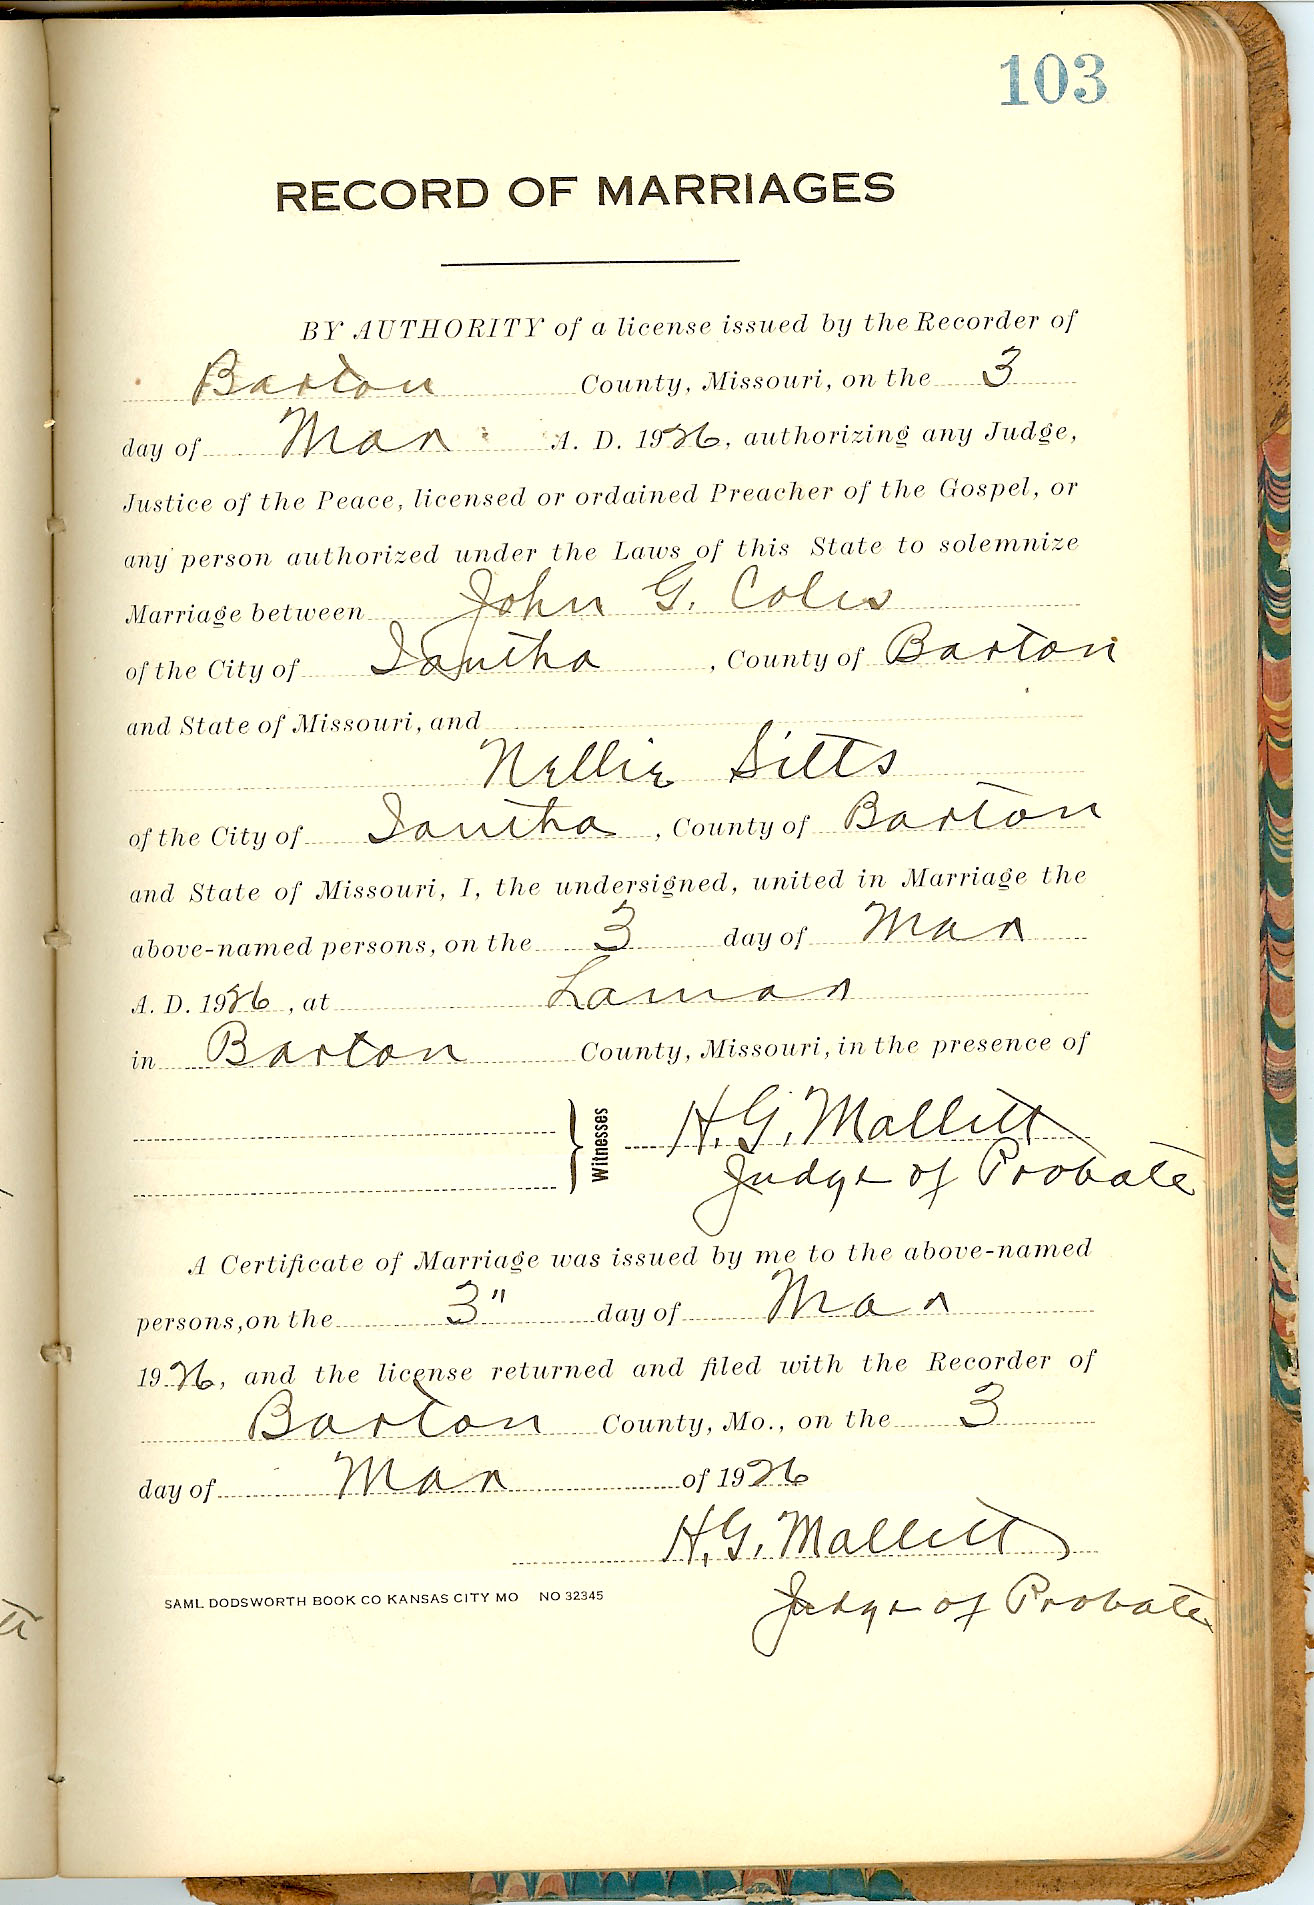 103
RECORD OF MARRIAGES
BY AUTHORITY of a license issued by the Recorder of
Barton County, Missouri, on the 3
day of Mar A. D. 1926, authorizing any Judge,
Justice of the Peace, licensed or ordained Preacher of the Gospel, or
any person authorized under the Laws of this State to solemnize
Marriage between John G. Coles
of the City of Iantha, County of Barton
and State of Missouri, and
Nellie Sitts
of the City of Iantha, County of Barton
and State of Missouri, I, the undersigned, united in Marriage the
above-named persons, on the 3 day of Mar
A. D. 1926, at Lamar
in Barton County, Missouri, in the presence of
Witnesses H. G. Mallitt
Judge of Probate
A Certificate of Marriage was issued by me to the above-named
persons, on the 3" day of Mar
1926, and the license returned and filed with the Recorder of
Barton County, Mo., on the 3
day of Mar of 1926
H. G. Mallitt
Judge of Probate
SAML DODSWORTH BOOK CO KANSAS CITY MO NO 32345